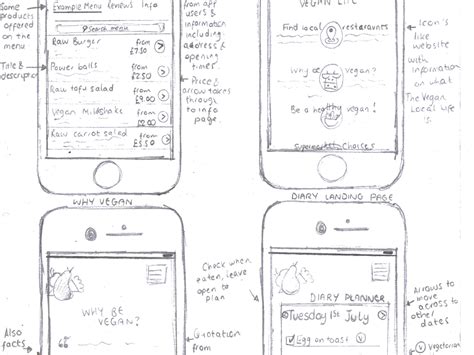 Some
products
offered
on the
menu
Title &
descriptor
Example Menu Reviews Info
Search menu
Raw Burger from £7.50
Power balls from £2.50
Raw tofu salad from £9.00
Vegan Milkshake from
Raw carrot salad from £5.50
from app
users &
information
including
address &
opening
times.
Price &
arrow takes
through
to info
page.
VEGAN LIFE
Find local restaurants
Why go vegan?
Be a healthy vegan!
Supermarket Choices
Icon's
like
website
with
information
on what
The Vegan
Local life
is.
WHY VEGAN
WHY BE
VEGAN?
Also
facts
Quotation
from
DIARY LANDING PAGE
Check when
eaten, leave
open to
plan
DIARY PLANNER
Tuesday 1st July
Egg on toast
Allows to
move
across to
other
dates
Vegetarian